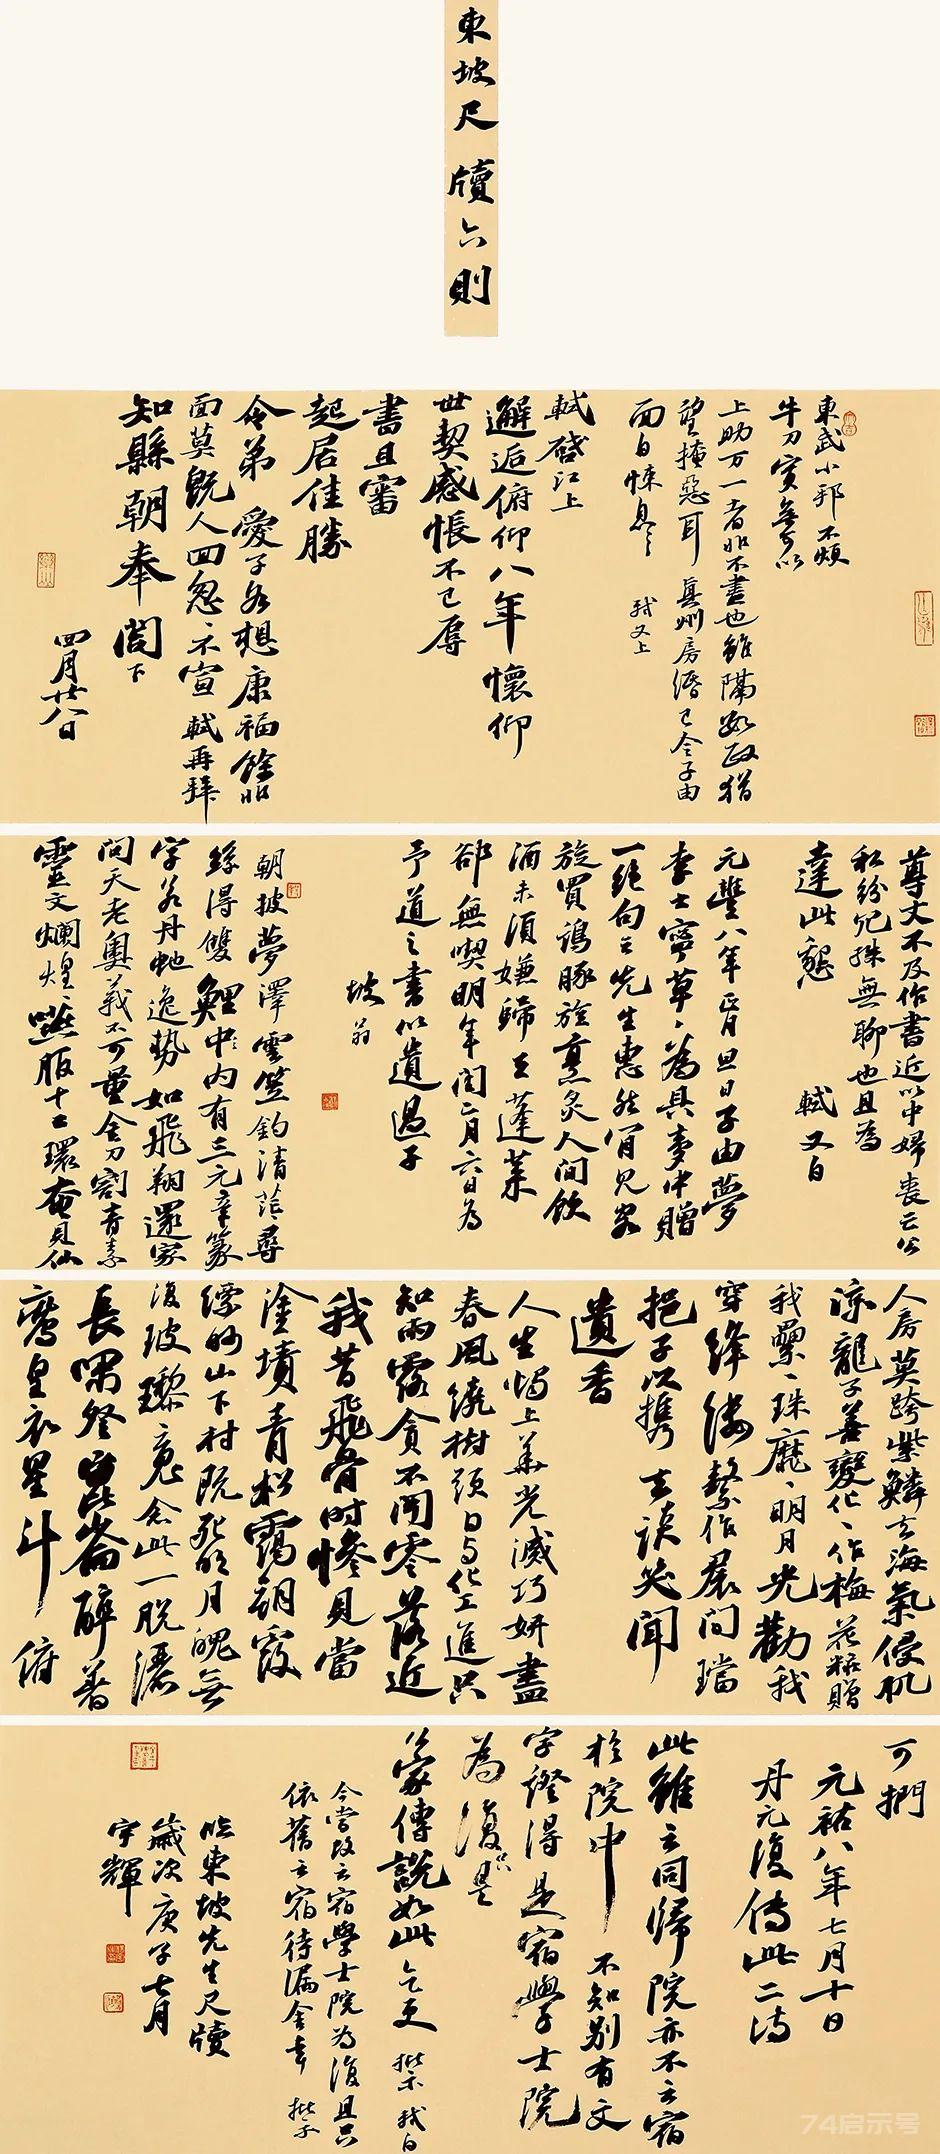 東坡尺牘六則
東武小邦不煩
牛刀實無可以
上助万一者非不盡也雖隔數政猶
望掩惡耳真州房緡已令子由
面白悚息
軾又上
軾啓江上
邂逅俯仰八年懷仰
世契感悵不已辱
書且審
起居佳勝
令弟愛子各想康福餘非
面莫既人回忽不宣軾再拜
知縣朝奉閣下
四月廿八日
尊丈不及作書近以中婦喪亡公
私紛冗殊無聊也且為
達此懇
軾又白
元豐八年正月旦日子由夢
李士寧草草為具夢中贈
一絕句云先生惠然肯見客
旋買鷄豚旋烹炙人間飲
酒未須嫌歸去蓬萊
卻無喫明年閏二月六日為
予道之書以遺過子
坡翁
朝披夢澤雲笠釣清茫尋
絲得雙鯉中中內有三元章篆
字若丹蛇逸勢如飛翔還家
問天老奧義不可量金刀割青素
靈文爛煌煌嚥服十二環奄見仙
人房莫跨紫鱗去海氣侵肌
涼龍子善變化化作梅花粧贈
我纍纍珠靡靡明月光勸我
穿絳縷繫作裙間璫
挹子以攜去談笑聞
遺香
人生燭上華光滅巧妍盡
春風繞樹頭日与化工進只
知雨露貪不聞零落近
我昔飛骨時慘見當
塗墳青松靄朝霞
縹緲山下村既死明月魄無
復玻瓈魂念此一脫灑
長嘯登崑崙醉著
鸞皇衣星斗俯
可捫
元祐八年七月十日
丹元復傳此二詩
此雖云同歸院亦不云宿
於院中不知別有文
字證得是宿學士院
為復只是
篆傳說如此乞更批示軾白
今嘗改云宿學士院為復且只
依舊云宿待漏舍幸批示
臨東坡先生尺牘
歲次庚子七月
宇輝
74启示号